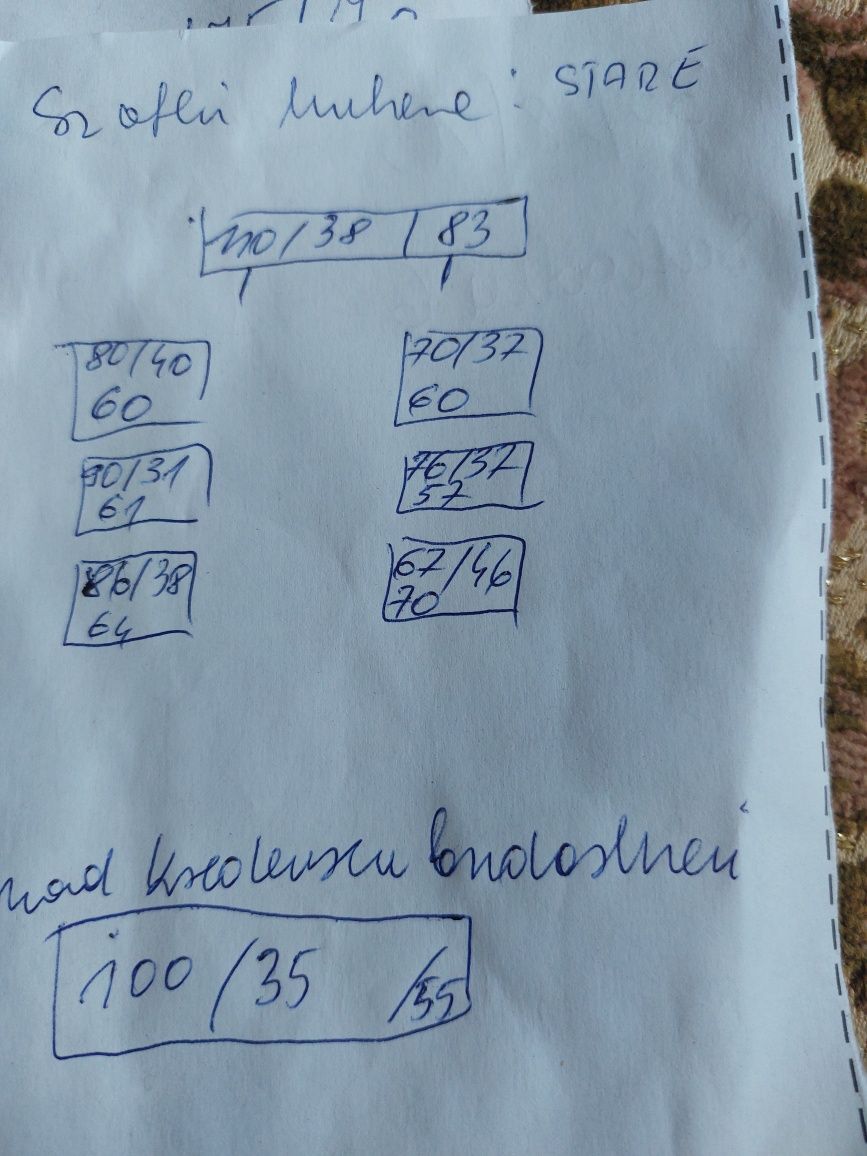 Szafki kuchenne: STARE
110/38 / 83
80/40
60
70/37
60
90/31
61
76/37
57
86/38
64
67/46
70
nad
100/35 /55